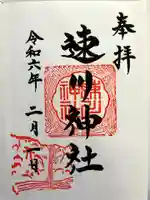 奉拝
速川神社
令和六年 二月一日